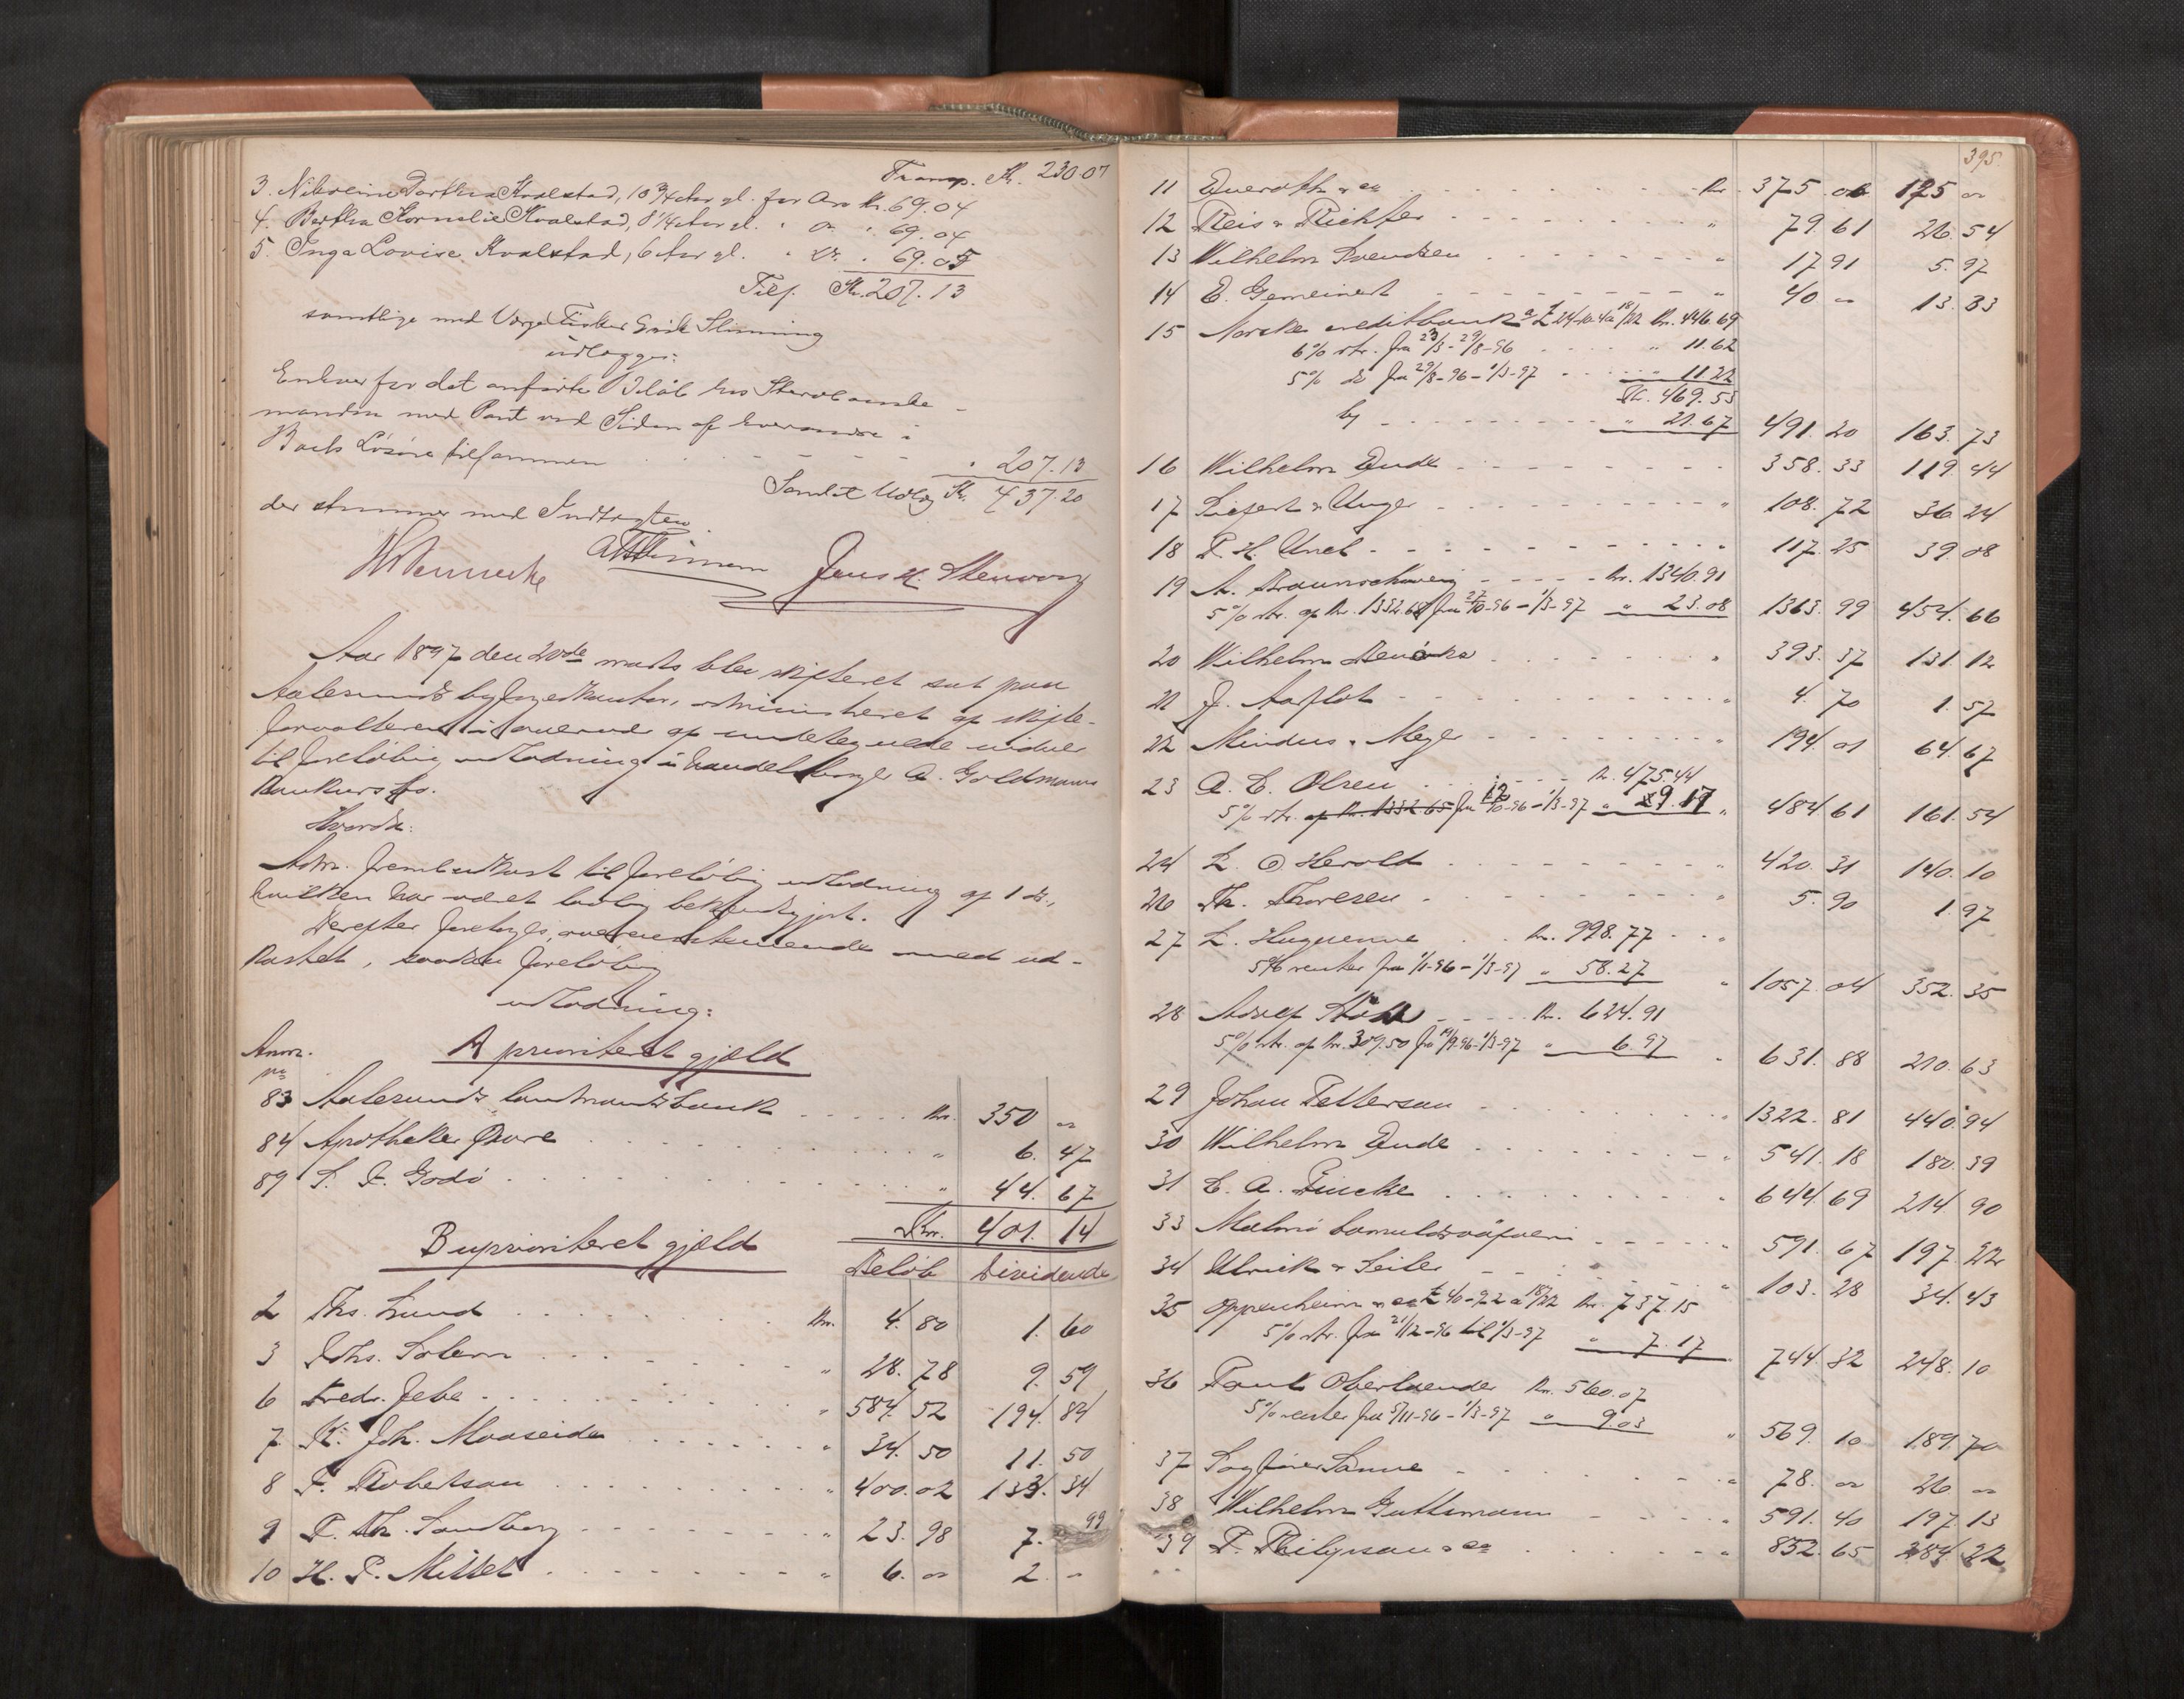 Transp. Kr. 230.07
3. Nikoline Dorthea Kvalstad, 10 3/4 Aar gl. for Arv Kr. 69.04
4. Bertha Kornelie Kvalstad, 8 1/4 Aar gl. " Do. " 69.04
5. Inga Lovise Kvalstad, 6 Aar gl. " Do. " 69.05
Tils. Kr. 207.13
samtlige med Værge Fisker Slinning
udlægges:
Enhver for det anførte Beløb hos Stervboenke-
manden med Pant ved Siden af hverandre i
Boets Løsøre tilsammen . . . . . . " 207.13
Samlet Udlæg Kr. 437.20
der stemmer med Indtægten.
Jens K. Stenvorg
Aar 1897 den 20de marts blev skifteret sat paa
Aalesunds byfogedkontor, administreret af skifte-
forvalteren i overvær af undertegnede vidner
til foreløbig udlodning i handelsborger A. Goldmanns
konkursbo.
Hvorda:
Adm. freml. udkast til foreløbig udlodning af 1 ds.,
hvilken har været lovlig bekjendtgjort.
Derefter foretoges, overensstemmende med ud-
kastet, saadan foreløbig
udlodning:
Anm. A prioriteret gjæld
no
83 Aalesunds landmandsbank . . . . . kr. 350 "
84 Apotheker Øwre . . . . . " 6. 47
89 S. F. Godø . . . . . " 44. 67
Kr. 401. 14
B uprioriteret gjæld Beløb Dividende
2 Ths. Lund . . . . . kr. 4. 80 1. 60
3 Johs. Solem . . . . . " 28. 78 9. 59
6 Fredr. Jebe . . . . . " 584. 52 194. 84
7 K. Joh. Maaseide . . . . . " 34. 50 11. 50
8 F. Robertson . . . . . " 400. 02 133. 34
9 F. Th. Sandberg . . . . . " 23. 98 7. 99
10 H. P. Misset . . . . . " 6. " 2. "
395.
11 & co . . . . . kr. 375. 06 125 "
12 Reis & Richter . . . . . " 79. 61 26. 54
13 Wilhelm Svendsen . . . . . " 17 91 5. 97
14 E. Gemeinert . . . . . " 40 " 13. 33
15 Norske creditbank £ 24-10-4 a 18/22 kr. 446.69
6% rtr. fra 23/3-29/8-96 . . . . " 11.62
5% do fra 29/8-96-1/3-97 . . . . " 11.22
Kr. 469.53
by . . . . . " 21.67 491. 20 163. 73
16 Wilhelm Dude . . . . . 358. 33 119. 44
17 Siefert & Unger . . . . . " 108. 72 36 24
18 P. H. Uneb . . . . . " 117. 25 39. 08
19 A. Braunschweig . . . . . kr. 1340.91
5% rtr. af kr. 1332.65 fra 27/10-96-1/3-97 " 23.08 1363. 99 454. 66
20 Wilhelm . . . . . " 393. 37 131. 12
21 J. Aarflot . . . . . " 4. 70 1. 57
22 Mindus & Meyer . . . . . " 194. 01 64. 67
23 A. C. Olsen . . . . . kr. 475.44
5% rtr. af kr. 1332.65 fra 12/10-96-1/3-97 " 9.17 " 484. 61 161. 54
24 L. O Herold . . . . . " 420. 31 140. 10
26 Th. Thoresen . . . . . " 5. 90 1. 97
27 L. Huguenne . . kr. 998.77 . . "
5% renter fra 1/1-96-1/3-97 " 58.27 " 1057. 04 352. 35
28 Adolf . . . . kr. 624.91
5% rtr. af kr. 309.50 fra 19/9-96-1/3-97 " 6.97 " 631. 88 210. 63
29 Johan Petterson . . . . . " 1322. 81 440. 94
30 Wilhelm Dude . . . . . " 541. 18 180. 39
31 C. A. Fincke . . . . . " 644. 69 214. 90
33 Malmö bomuldsväfveri . . . . . " 591. 67 197. 22
34 Ulrich & Seiler . . . . . " 103. 28 34. 43
35 Oppenheim & co £ 40-9-2 a 18/22 kr. 737.15
5% rtr. fra 21/12-96 til 1/3-97 " 7.17 744. 32 248. 10
36 Paul Oberlaender kr. 560.07
5% renter fra 5/11-96-1/3-97 " 9.03 " 569. 10 189. 70
37 Sagfører Sanne . . . . . " 78. " 26 "
38 Wilhelm Guttmann . . . . . " 591. 40 197. 13
39 F. Philipsson & co . . . . . " 852. 65 284 22